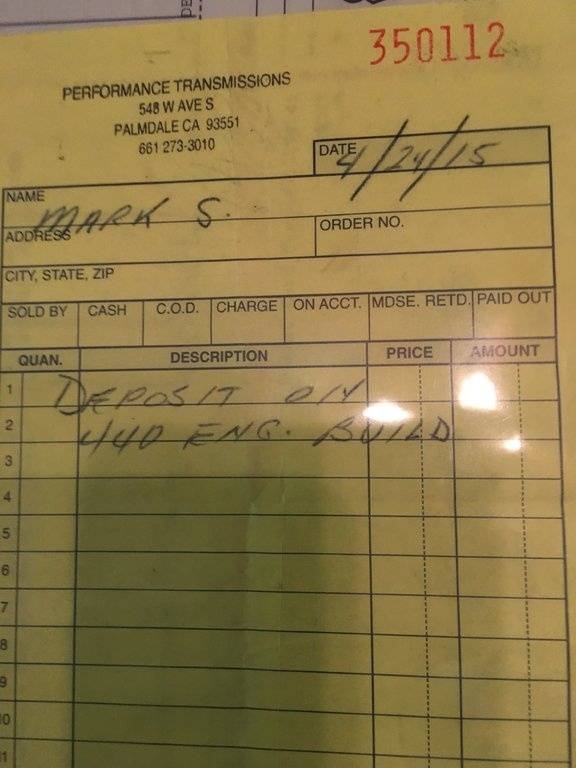 350112
PERFORMANCE TRANSMISSIONS
548 W AVE S
PALMDALE CA 93551
661 273-3010
DATE 4/24/15
NAME
MARK S.
ADDRESS
ORDER NO.
CITY, STATE, ZIP
SOLD BY CASH C.O.D. CHARGE ON ACCT. MDSE. RETD. PAID OUT
QUAN. DESCRIPTION PRICE AMOUNT
1 DEPOSIT ON
2 440 ENG. BUILD
3
4
5
6
7
8
9
10
11